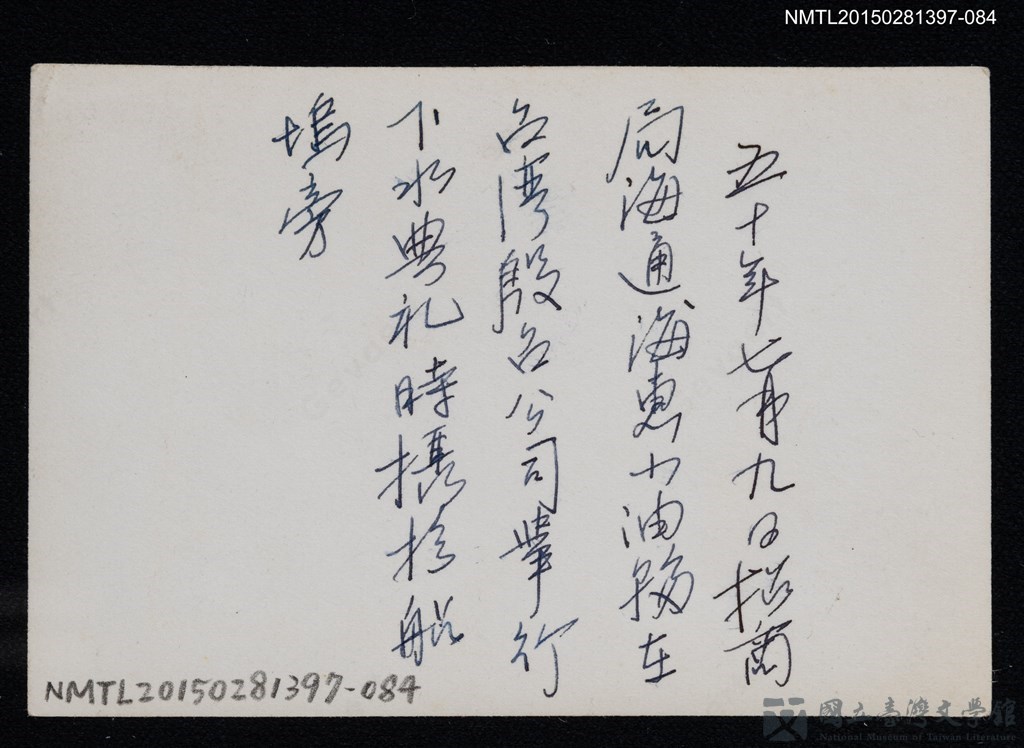 NMTL20150281397-084
五十年七月九日招商
局海通海惠小油輪在
台湾殷台公司舉行
下水典礼時攝於船
塢旁
NMTL20150281397-084
國立臺灣文學館
National Museum of Taiwan Literature